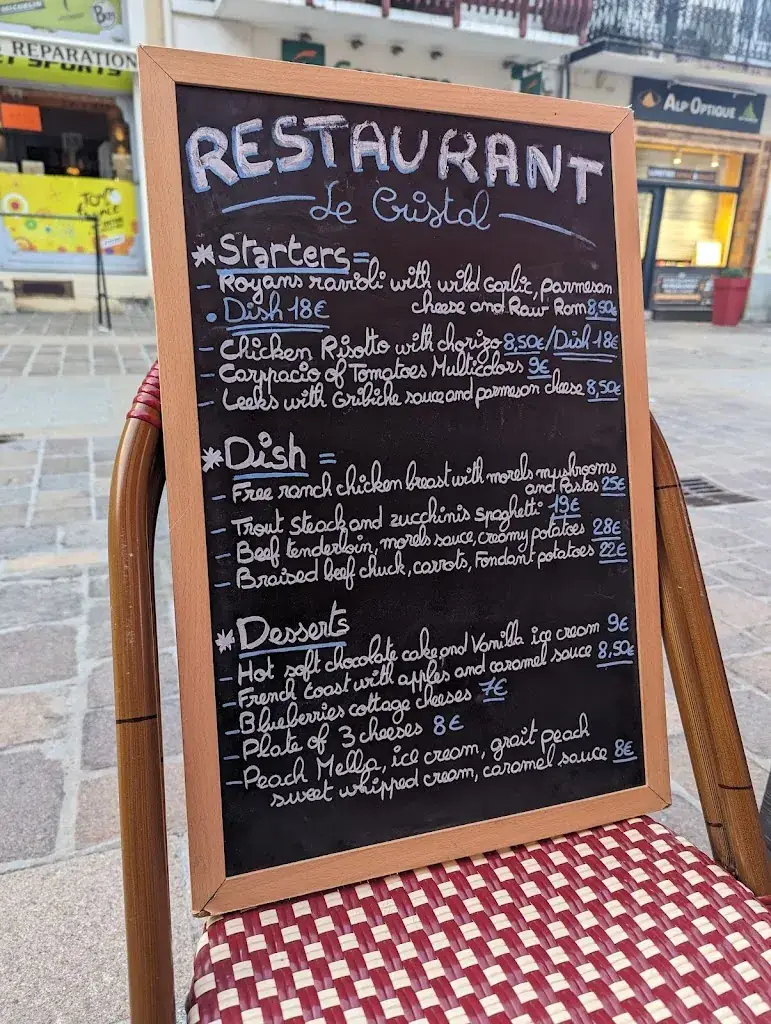 MICHELIN
REPARATION
SPORTS
ALP OPTIQUE
RESTAURANT
Le Cristal
* Starters =
- Royans ravioli with wild Garlic, parmesan
• Dish 18€ cheese and Raw Rom 8,50€
- Chicken Risotto with chorizo 8,50€/Dish 18€
- Carpacio of Tomatoes Multicolors 9€
- Leeks with Gribiche sauce and parmesan cheese 8,50€
* Dish =
- Free ranch chicken breast with morels mushrooms
and Pastas 25€
- Trout Steack and zucchinis spaghetti 19€
- Beef tenderloin, morels sauce, creamy potatoes 28€
- Braised beef chuck, carrots, Fondant potatoes 22€
* Desserts
- Hot soft chocolate cake and Vanilla ice cream 9€
- French toast with apples and caramel sauce 8,50€
- Blueberries cottage cheeses 7€
- Plate of 3 cheeses 8€
- Peach Mella, ice cream, grait peach
sweet whipped cream, caramel sauce 8€